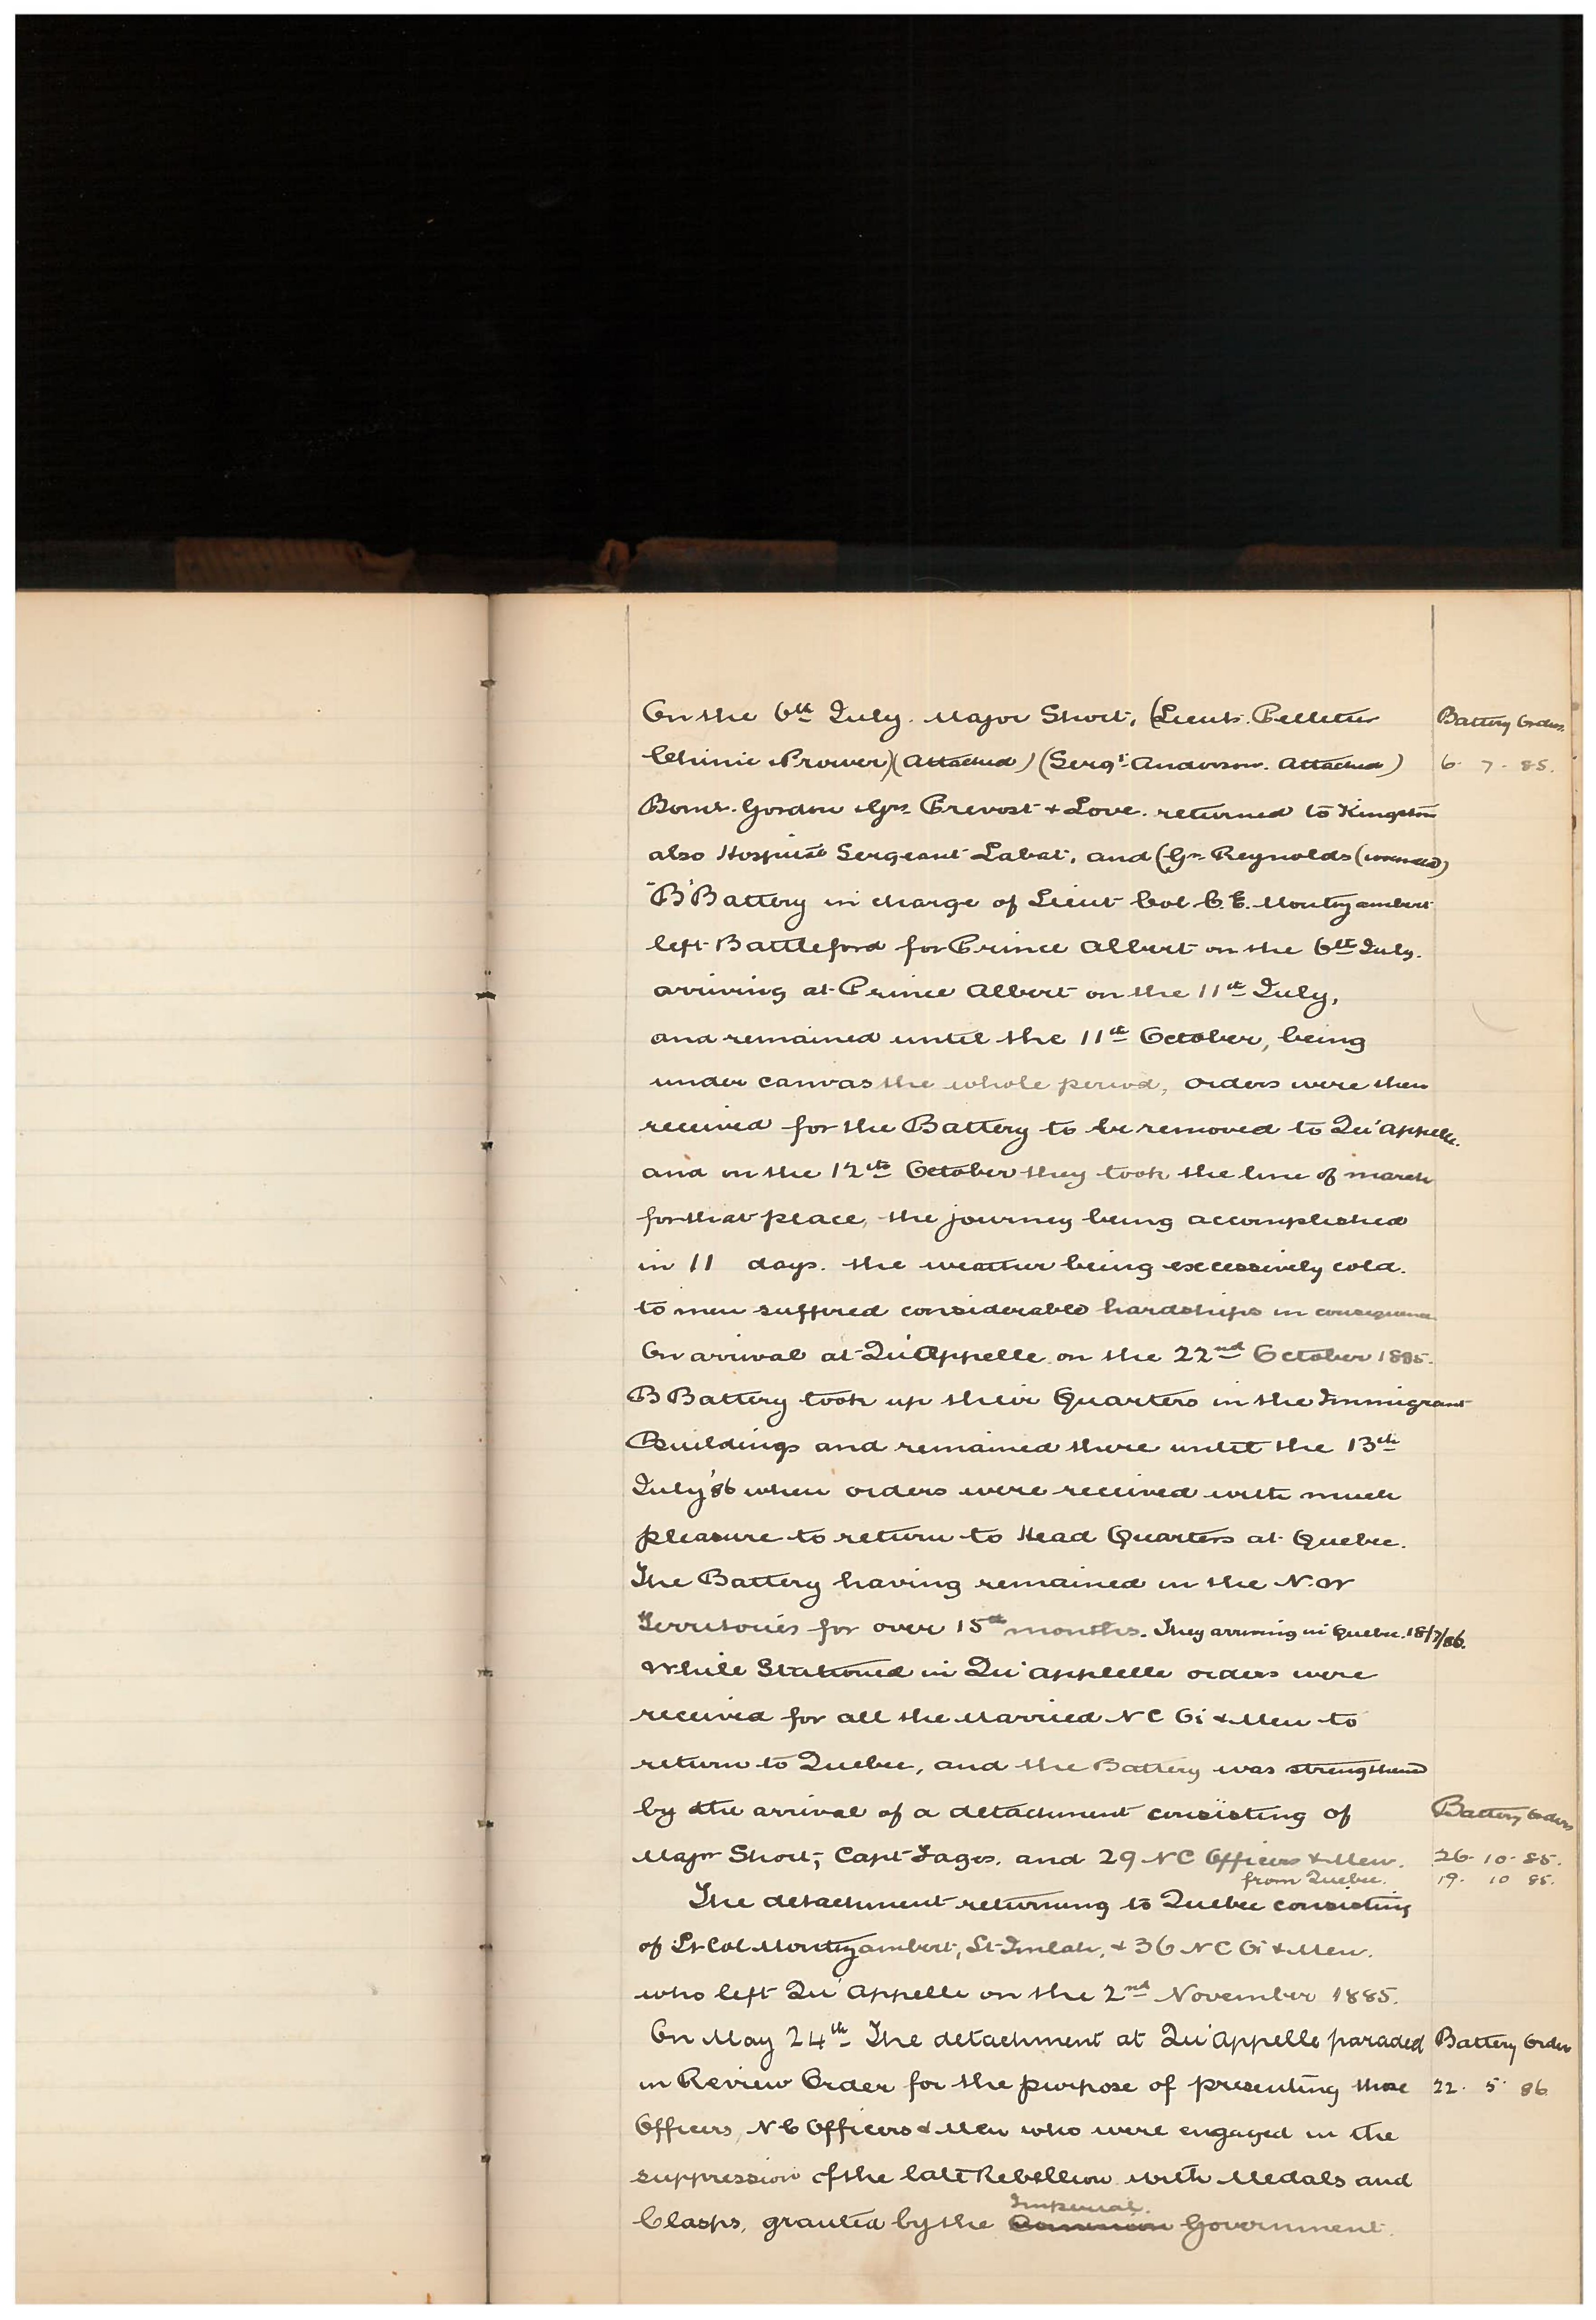 On the 6th July. Major Short, (Lieuts. Pelletier Battery Orders.
Chinic & Prower) (Attached) (Sergt. Anderson. Attached) 6. 7. 85.
Bomr. Gordon & Grs. Prevost & Love. returned to Kingston
also Hospital Sergeant Labat, and (Gr. Reynolds (wounded)
"B" Battery in charge of Lieut Col C. E. Montizambert
left Battleford for Prince Albert on the 6th July.
arriving at Prince Albert on the 11th July,
and remained until the 11th October, being
under canvas the whole period, orders were then
received for the Battery to be removed to Qu'appelle.
and on the 12th October they took the line of march
for that place, the journey being accomplished
in 11 days. the weather being excessively cold.
to men suffered considerable hardships in consequence
On arrival at Qu'Appelle on the 22nd October 1885.
B Battery took up their Quarters in the Immigrant
Buildings and remained there until the 13th
July '86 when orders were received with much
pleasure to return to Head Quarters at Quebec.
The Battery having remained in the N. W
Territories for over 15th months. They arriving in Quebec. 18/7/86.
While Stationed in Qu'appelle orders were
received for all the Married N C Os & Men to
return to Quebec, and the Battery was strengthened
by the arrival of a detachment consisting of Battery Orders
Major Short, Capt Fages. and 29 N C Officers & Men. 26. 10. 85.
from Quebec. 19. 10 85.
The detachment returning to Quebec consisting
of Lt Col Montizambert, Lt Imlah, & 36 N C Os & Men.
who left Qu'Appelle on the 2nd November 1885.
On May 24th The detachment at Qu'Appelle paraded Battery Order
in Review Order for the purpose of presenting those 22. 5. 86
Officers, N C Officers & Men who were engaged in the
suppression of the late Rebellion with Medals and
Imperial.
Clasps, granted by the Dominion Government.